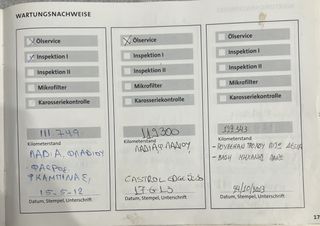 WARTUNGSNACHWEISE
Ölservice
Inspektion I
Inspektion II
Mikrofilter
Karosseriekontrolle
111.749
Kilometerstand
ΛΑΔΙΑ, ΦΙΛΔΙΟΥ
ΦΑΕΡΟΣ,
ΦΚΑΜΠΙΝΑΣ,
15-5-12
Datum, Stempel, Unterschrift
Ölservice
Inspektion I
Inspektion II
Mikrofilter
Karosseriekontrolle
119300
Kilometerstand
ΛΑΔΙΑ
CASTROL EDGE
Datum, Stempel, Unterschrift
Ölservice
Inspektion I
Inspektion II
Mikrofilter
Karosseriekontrolle
Kilometerstand
Datum, Stempel, Unterschrift
17